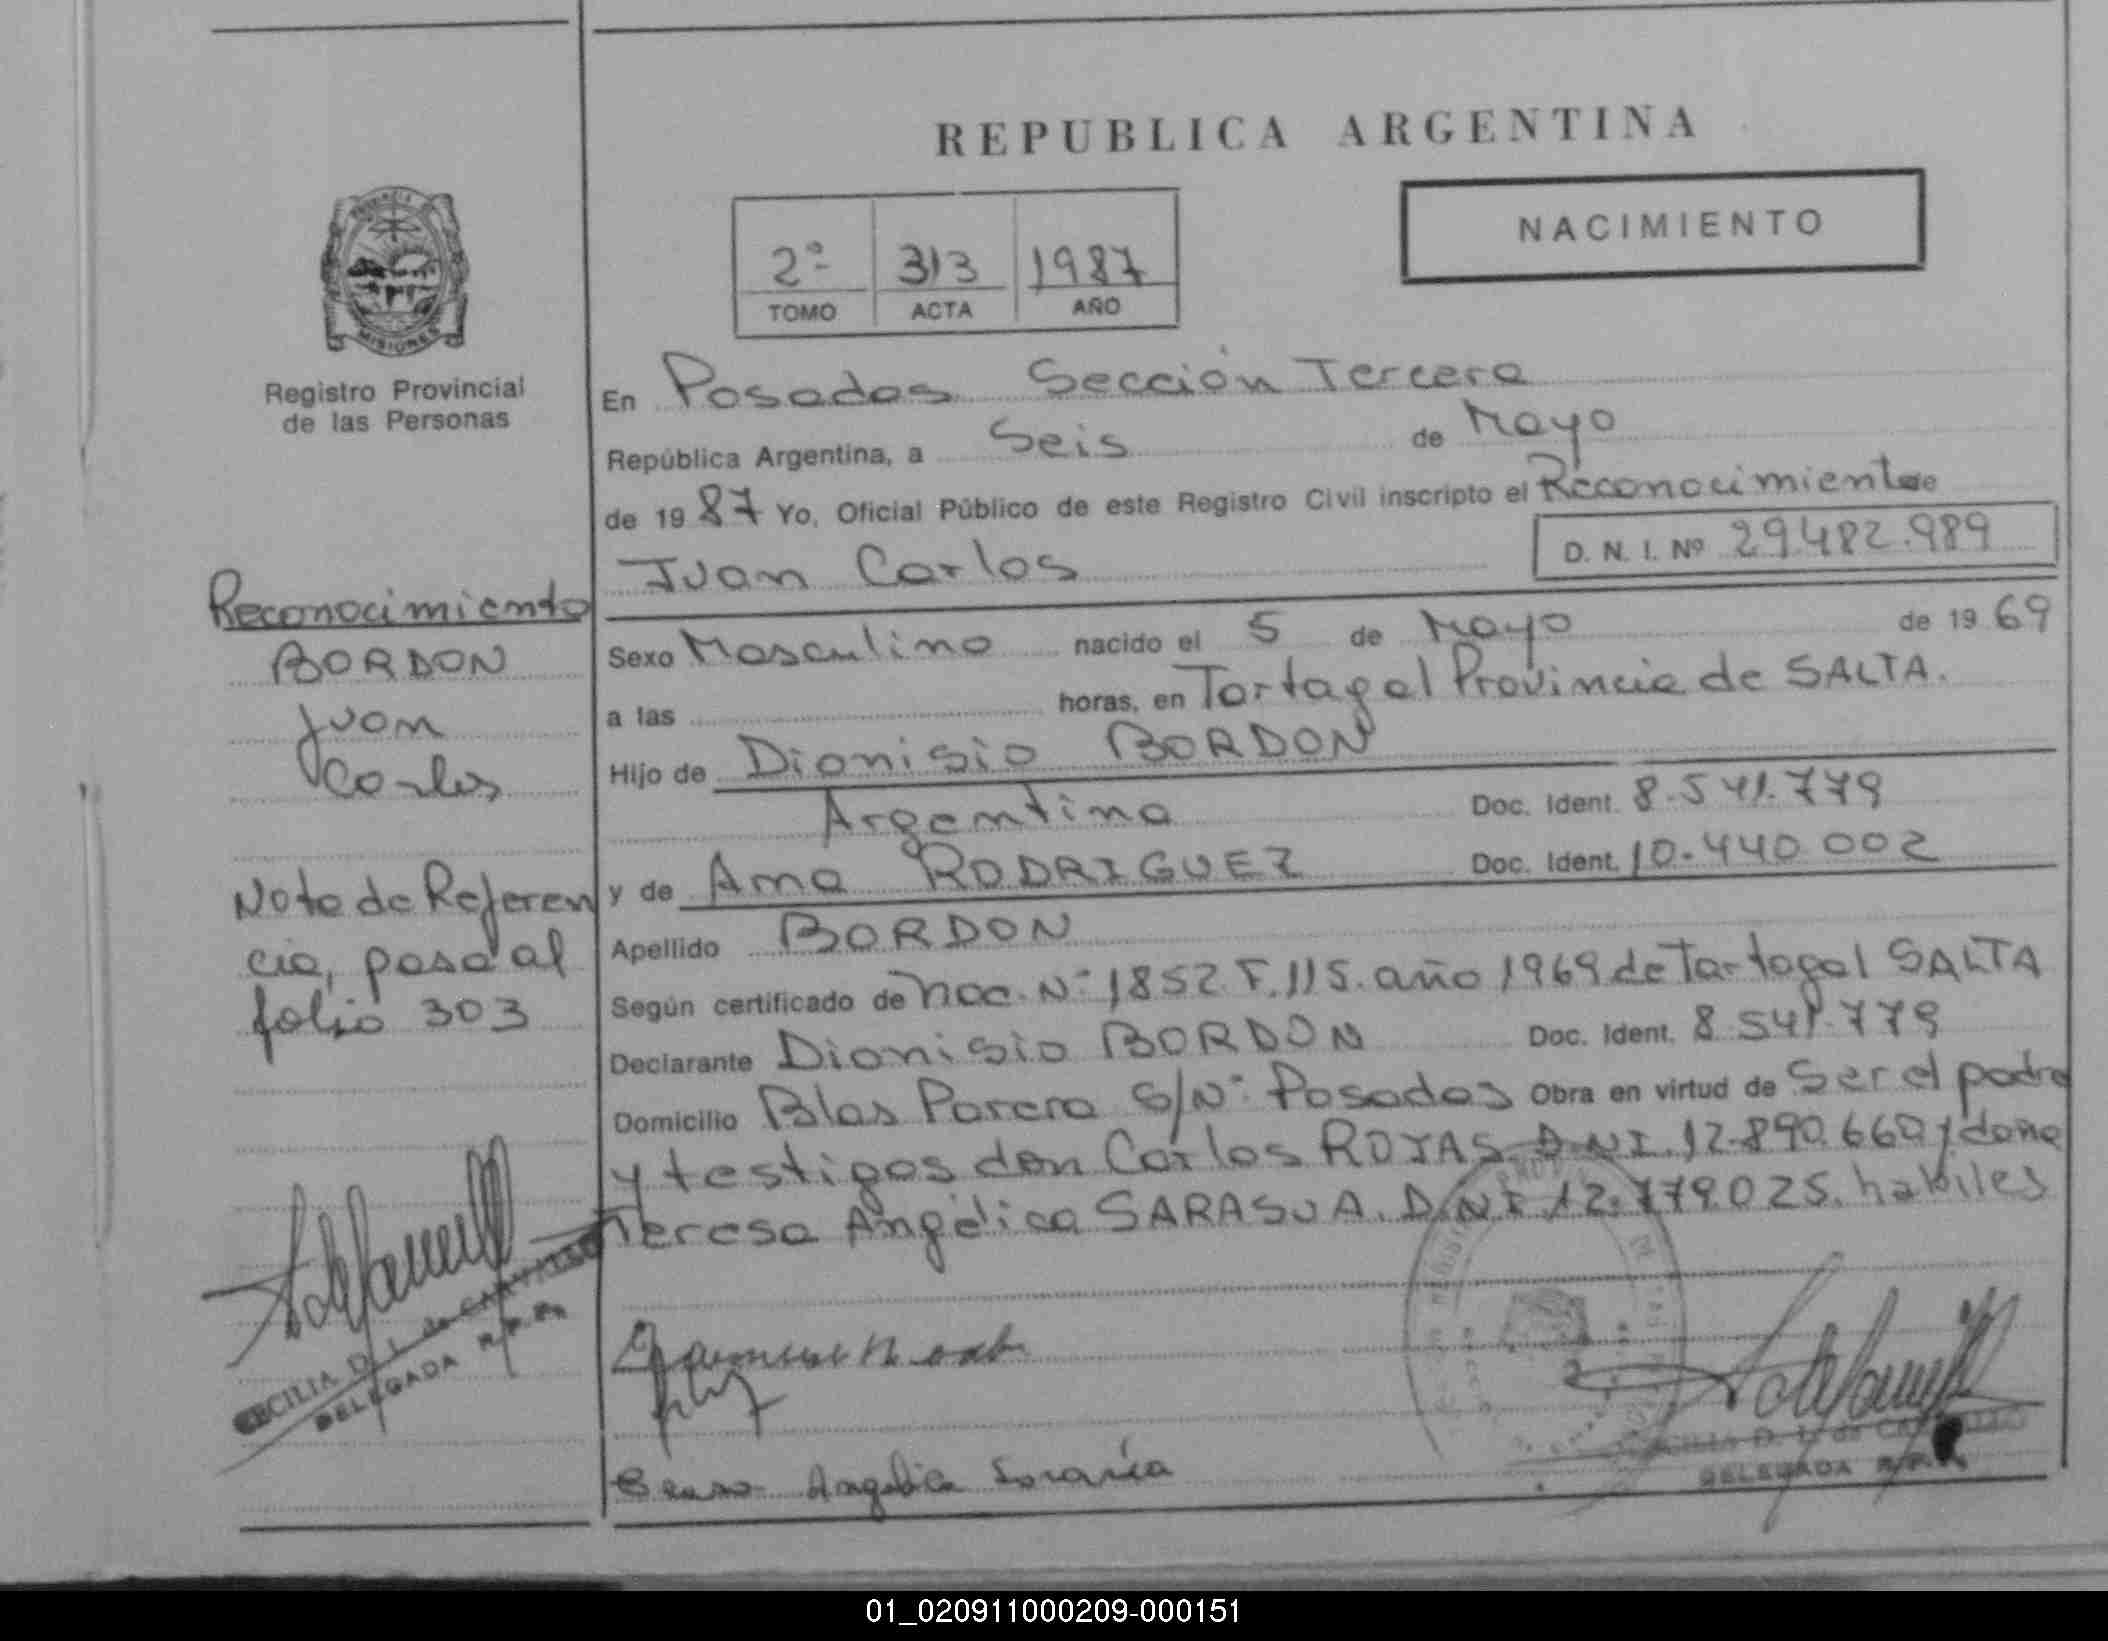 REPUBLICA ARGENTINA
NACIMIENTO
2º 313 1987
TOMO ACTA AÑO
MISIONES
Registro Provincial
de las Personas
En Posadas Sección Tercera
República Argentina, a Seis de Mayo
de 19 87 Yo, Oficial Público de este Registro Civil inscripto el Reconocimiento de
Juan Carlos D. N. I. Nº 29.482.989
Sexo Masculino nacido el 5 de Mayo de 19 69
a las horas, en Tartagal Provincia de SALTA.
Hijo de Dionisio BORDON
Argentina Doc. Ident. 8.541.779
y de Ana RODRIGUEZ Doc. Ident. 10.440.002
Apellido BORDON
Según certificado de nac. Nº 1852. F. 115. año 1969 de Tartagal SALTA
Declarante Dionisio BORDON Doc. Ident. 8.541.779
Domicilio Blas Parera S/Nº Posadas Obra en virtud de Ser el padre
y testigos don Carlos ROJAS D.N.I. 12.890.660 y doña
Teresa Angélica SARASUA. D.N.I. 12.779.025. habiles
Reconocimiento
BORDON
Juan
Carlos
Nota de Referen
cia, pasa al
folio 303
CECILIA D. L. de
DELEGADA R.P.P.
Angelica
CECILIA D. L. de
DELEGADA R.P.P.
01_020911000209-000151